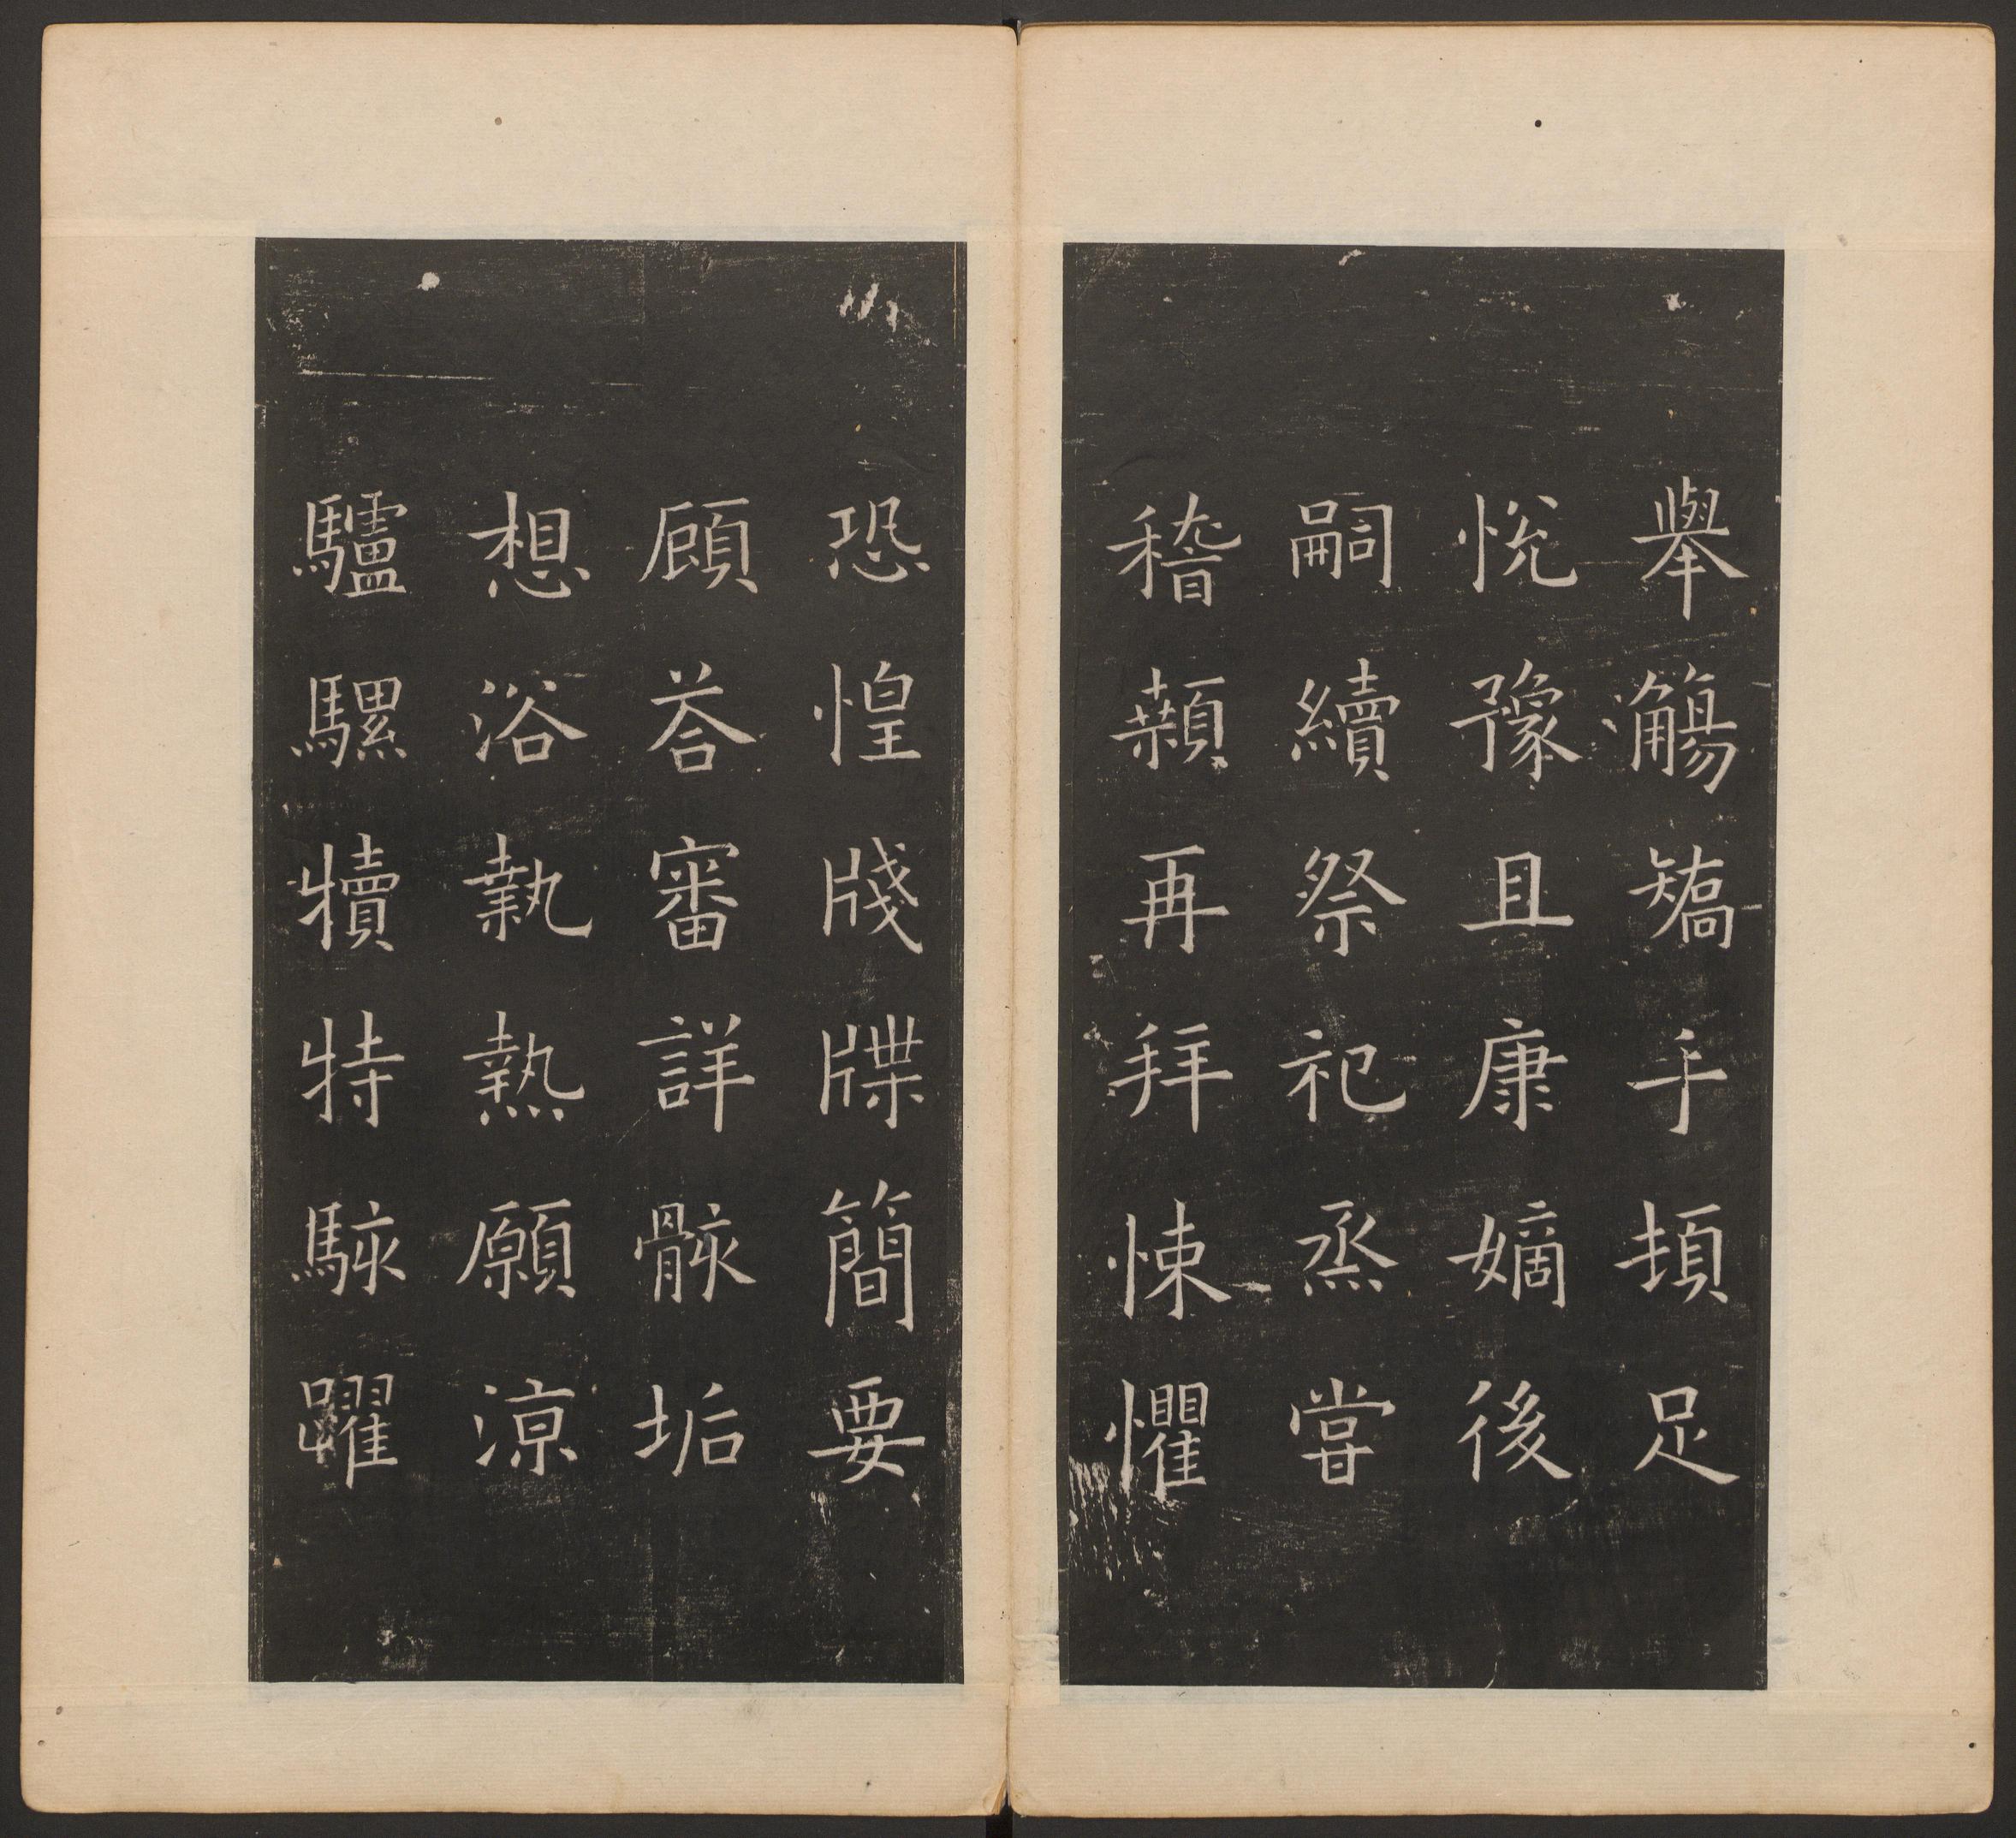 舉觴矯手頓足
悅豫且康嫡後
嗣續祭祀烝嘗
稽顙再拜悚懼
恐惶牋牒簡要
顧荅審詳骸垢
想浴執熱願涼
驢騾犢特駭躍